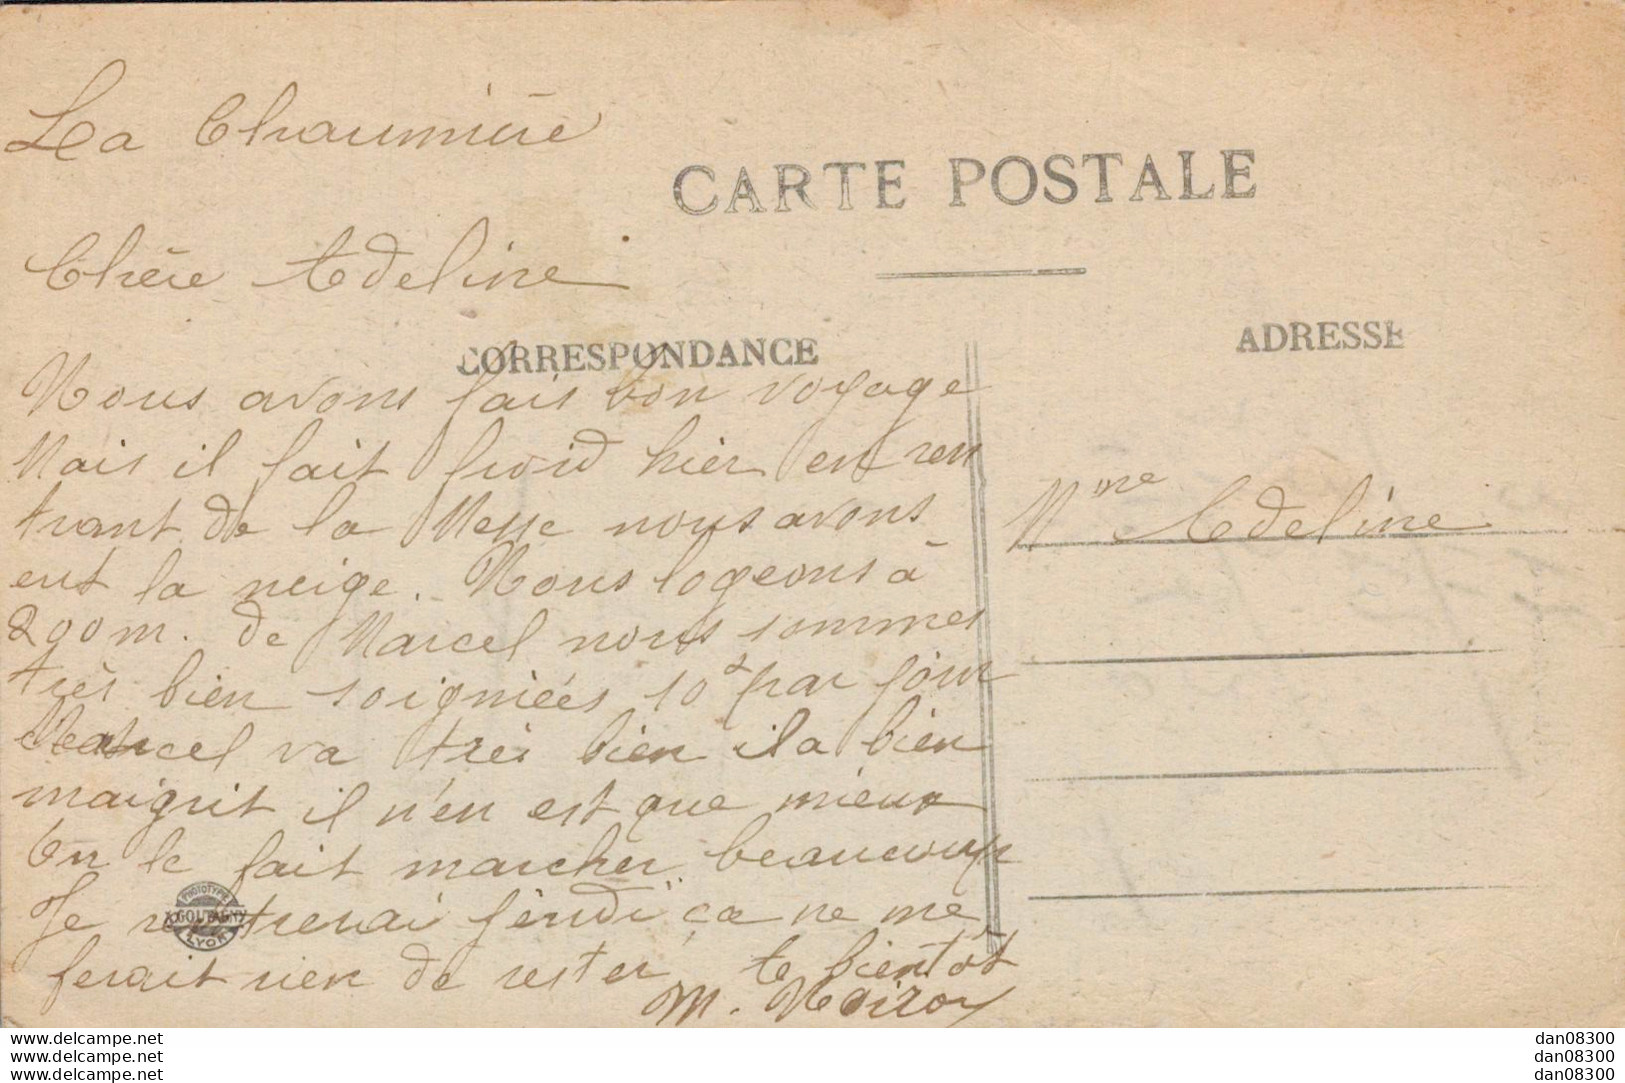 La Chaumière
CARTE POSTALE
Chère Adeline
CORRESPONDANCE
ADRESSE
Nous avons fais bon voyage
Mais il fait froid hier en ren
trant de la Messe nous avons
eut la neige. Nous logeons à
200m. de Marcel nous sommes
très bien soigniées 10 par jour
Marcel va très bien il a bien
maigrit il n'en est que mieux
On le fait marcher beaucoup
Je rentrerai jeudi ça ne me
ferait rien de rester te bientôt
M. Noizou
Mme Adeline
PHOTOTYPIE
GOUTAGNY
LYON
www.delcampe.net
www.delcampe.net
www.delcampe.net
dan08300
dan08300
dan08300